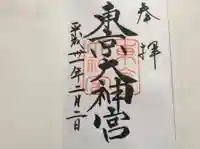 奉拝
東京大神宮
平成卅一年二月二日